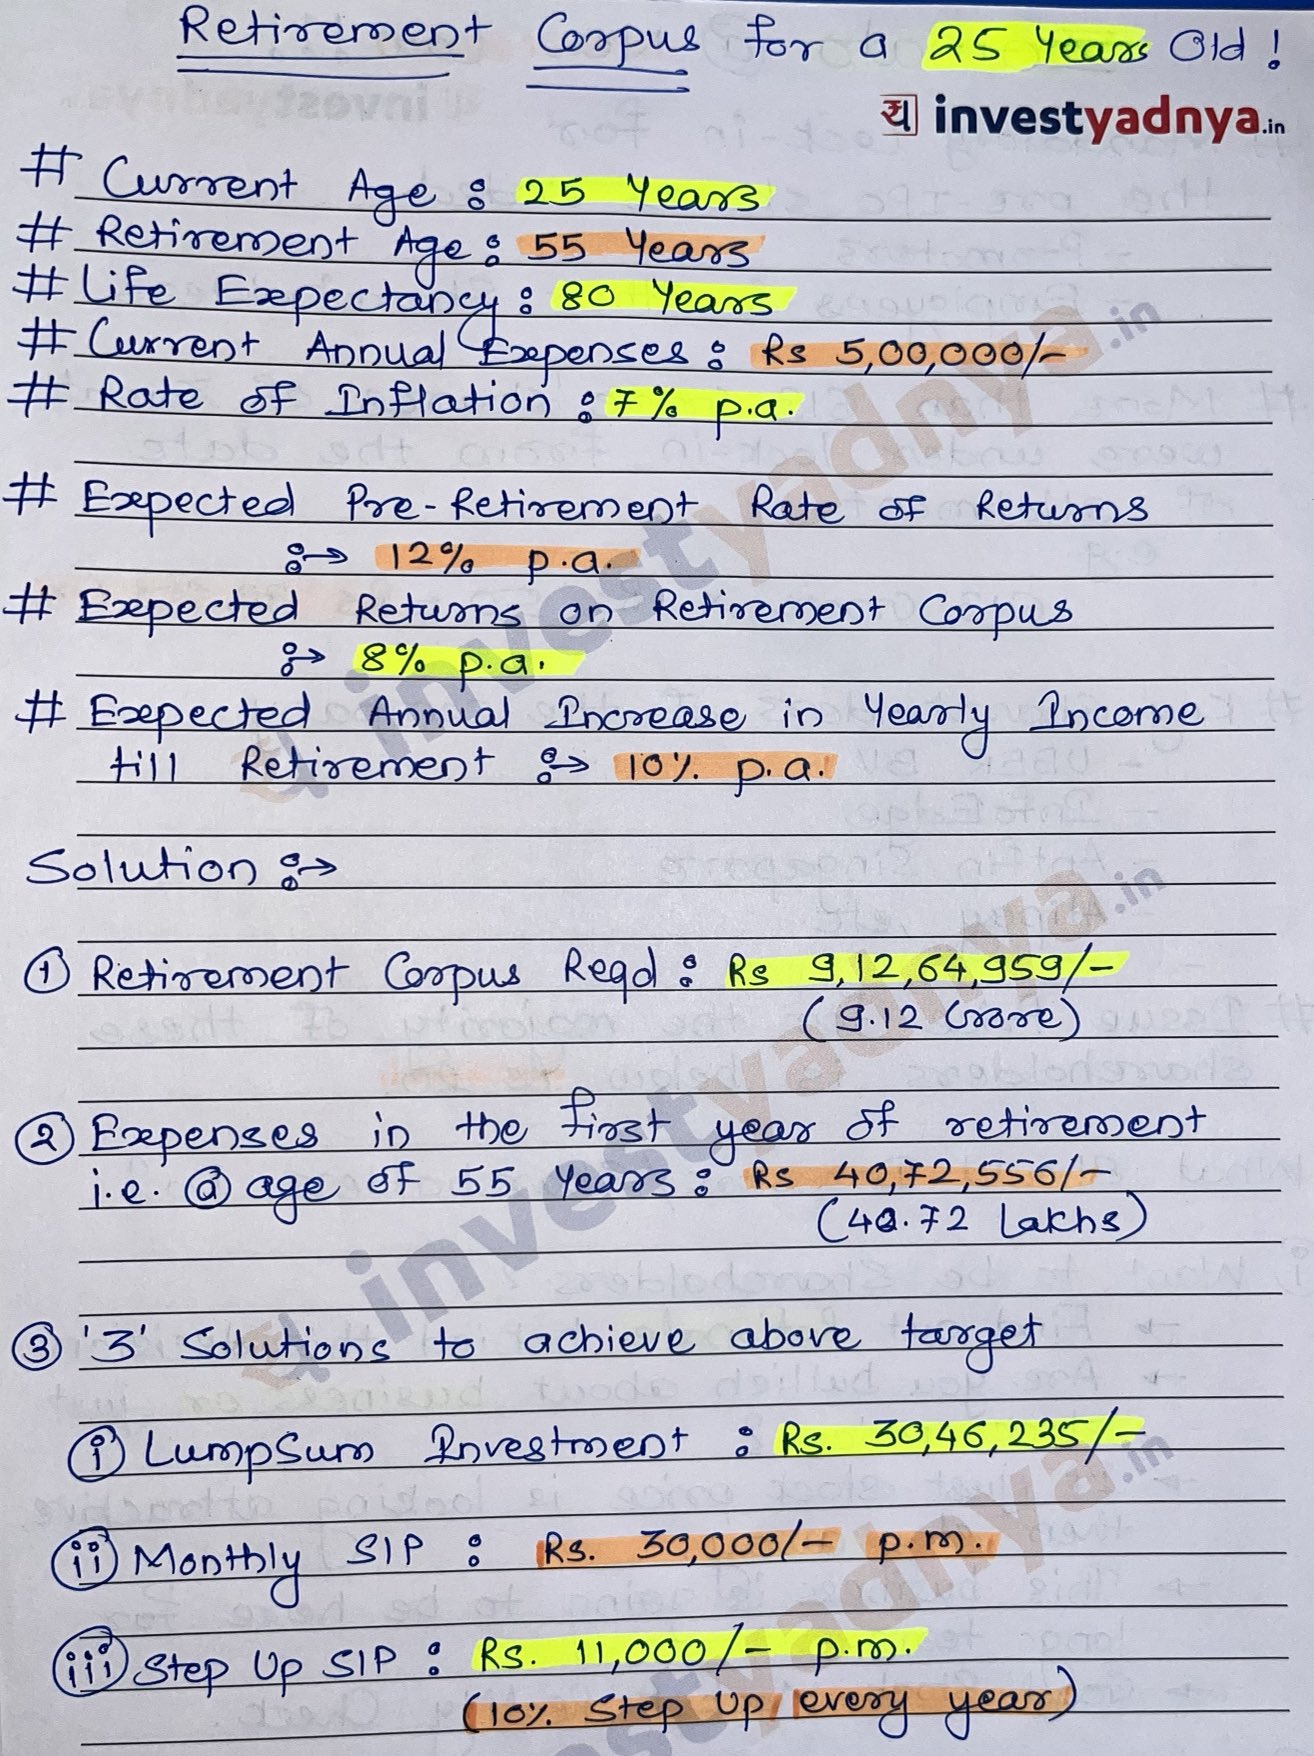 Retirement Corpus for a 25 Years Old!
य investyadnya.in
# Current Age : 25 Years
# Retirement Age : 55 Years
# Life Expectancy : 80 Years
# Current Annual Expenses : Rs 5,00,000/-
# Rate of Inflation : 7% p.a.
# Expected Pre-Retirement Rate of Returns
:→ 12% p.a.
# Expected Returns on Retirement Corpus
:→ 8% p.a.
# Expected Annual Increase in Yearly Income
till Retirement :→ 10% p.a.
Solution :→
① Retirement Corpus Reqd : Rs 9,12,64,959/-
(9.12 Crore)
② Expenses in the first year of retirement
i.e. @ age of 55 Years : Rs 40,72,556/-
(40.72 Lakhs)
③ '3' Solutions to achieve above target
(i) LumpSum Investment : Rs. 30,46,235/-
(ii) Monthly SIP : Rs. 30,000/- p.m.
(iii) Step Up SIP : Rs. 11,000/- p.m.
(10% Step Up every year)
investyadnya.in
investyadnya.in
investyadnya.in